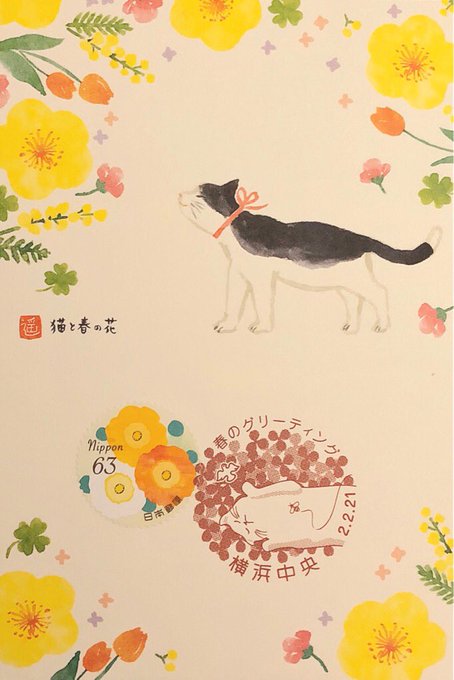 猫と春の花
Nippon
63
日本郵便
春のグリーティング
2.2.21
横浜中央